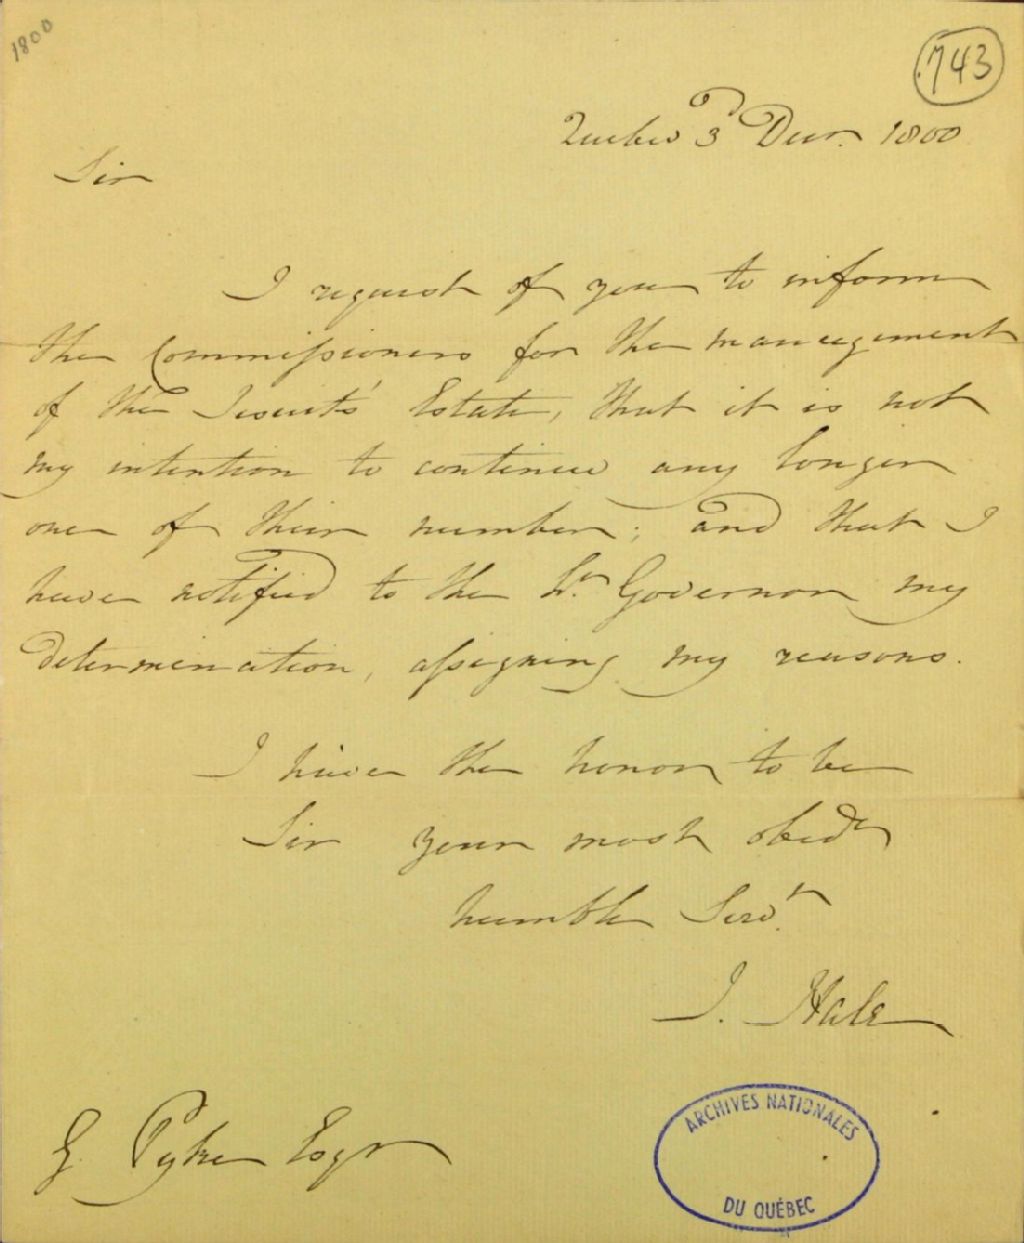 1800
743
Quebec 3d Decr. 1800
Sir
I request of you to inform
the Commissioners for the management
of the Jesuits' Estate, that it is not
my intention to continue any longer
one of their number; and that I
have notified to the Lt. Governor my
determination, assigning my reasons.
I have the honor to be
Sir your most obedt
humble Servt.
J. Hale
G. Pyke Esqr
ARCHIVES NATIONALES
DU QUÉBEC